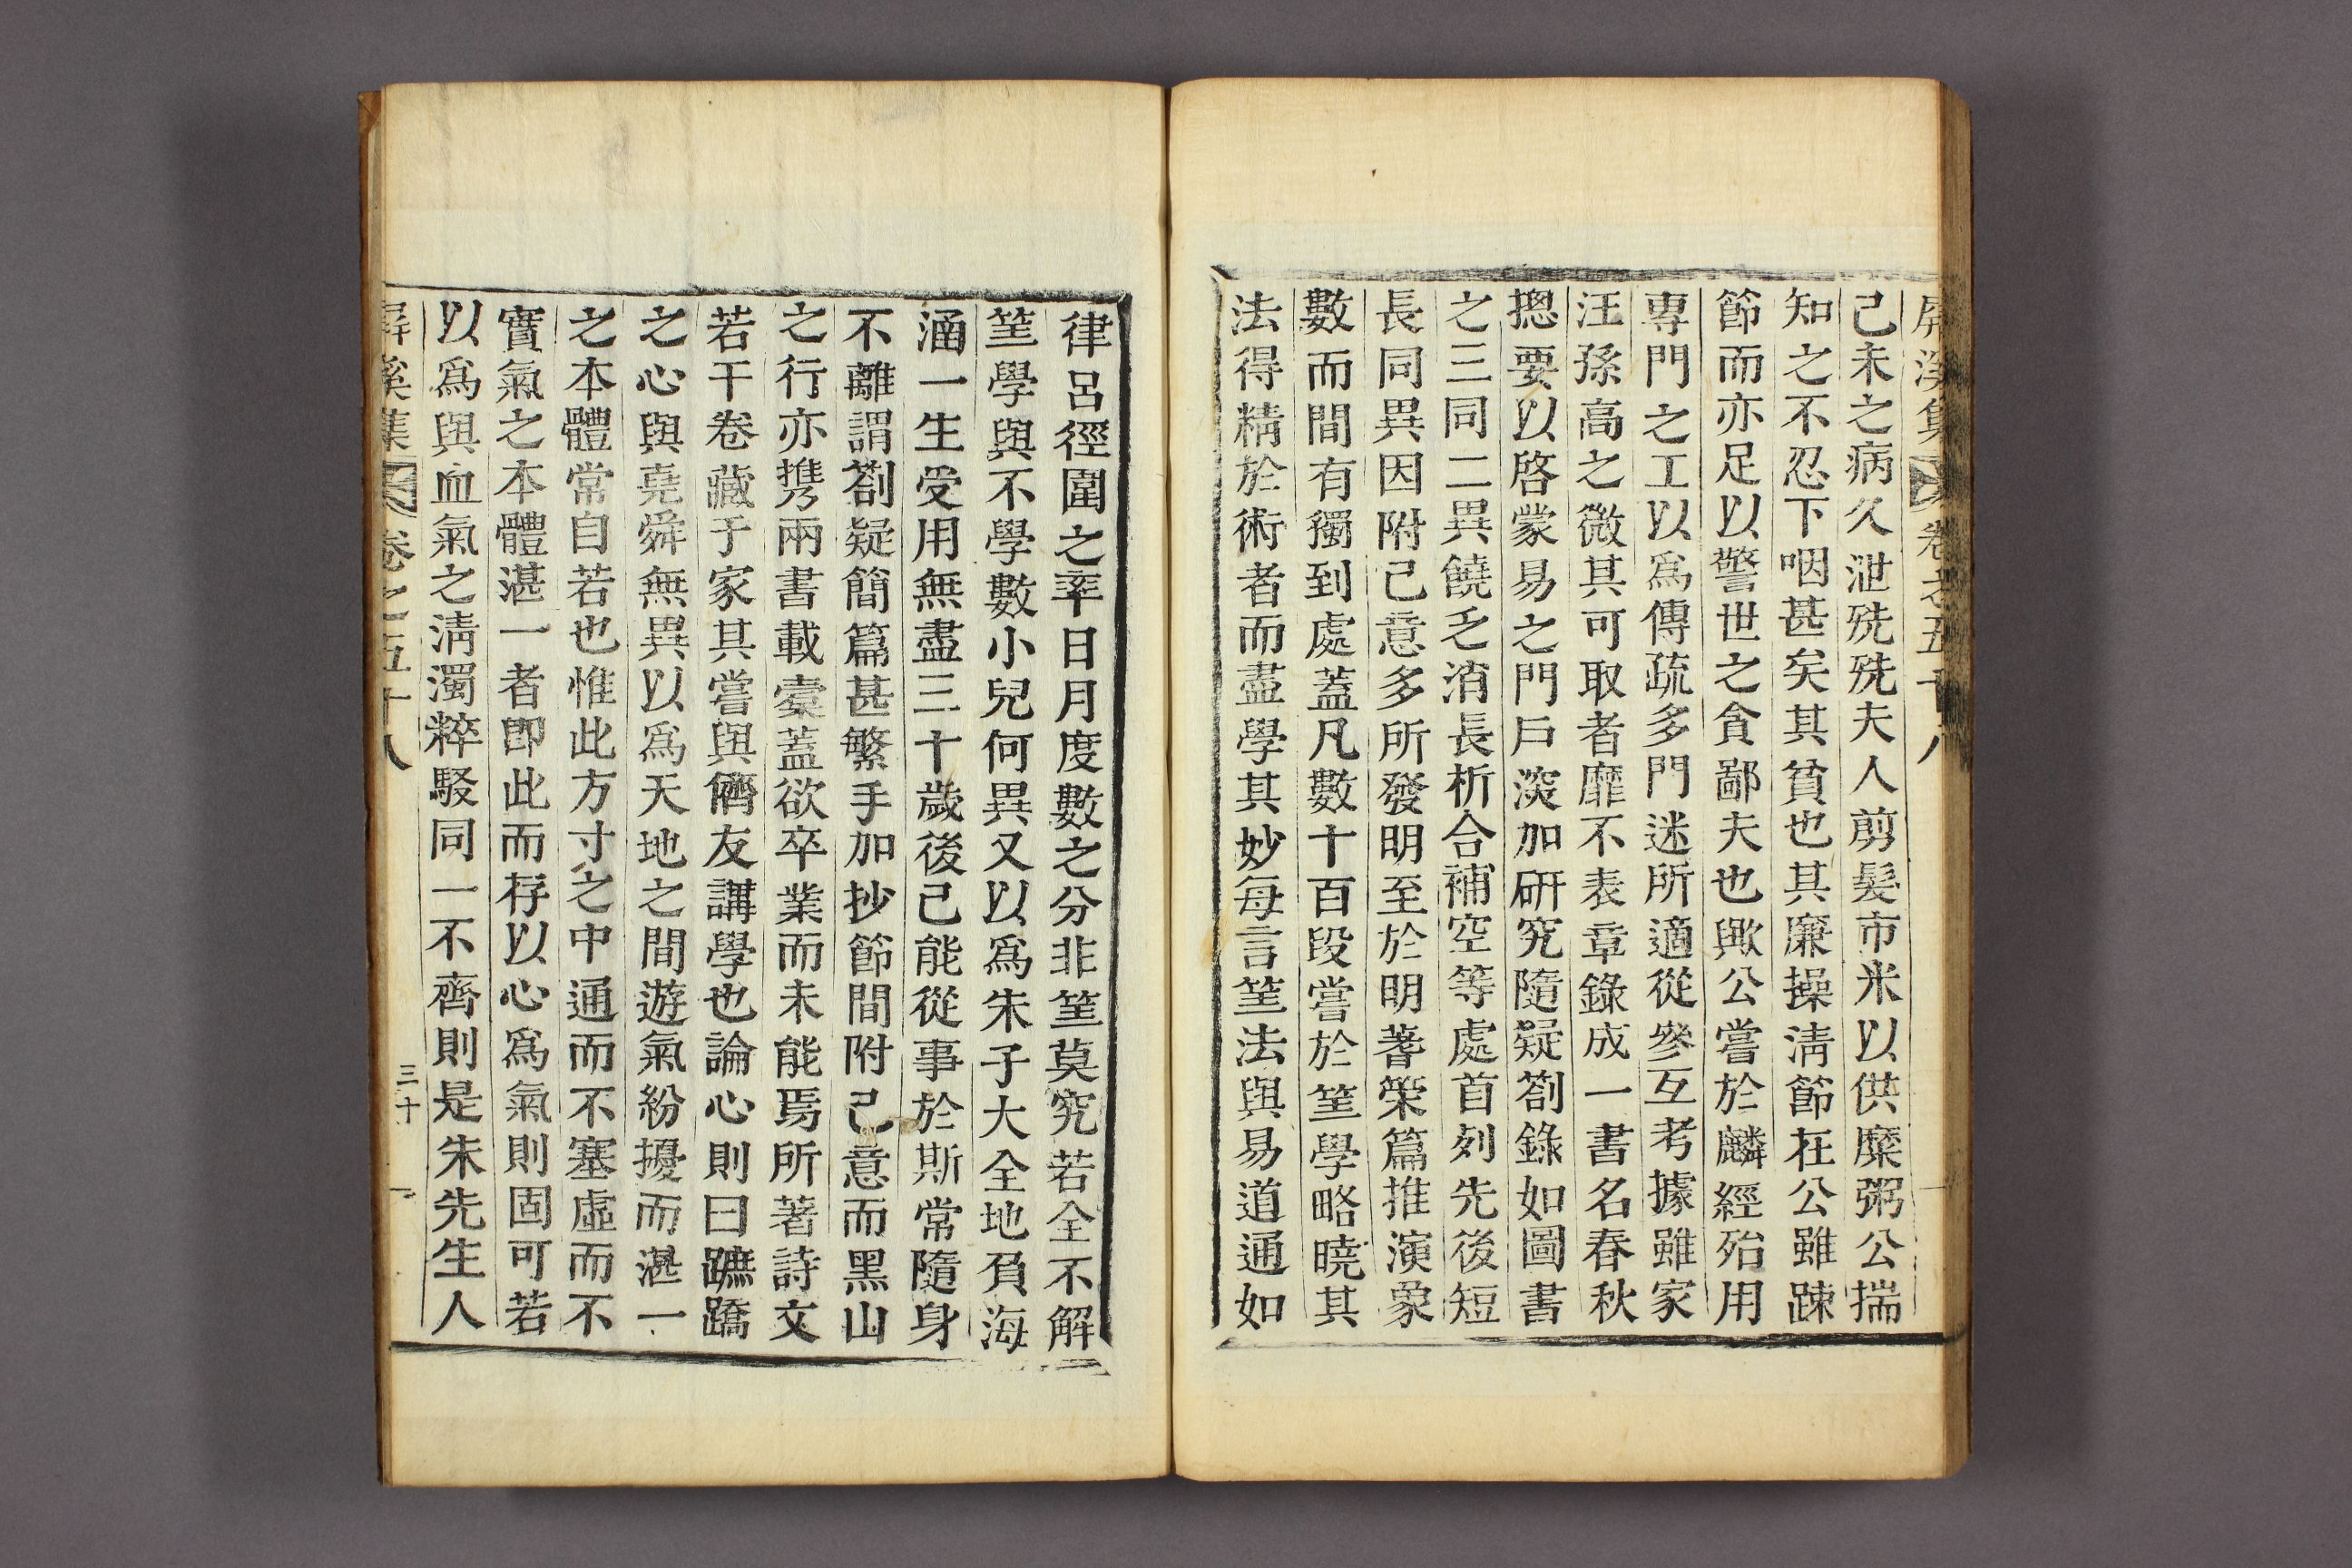 屛溪集 卷之五十八
己未之病久泄㱡㱡夫人剪髮市米以供糜粥公揣
知之不忍下咽甚矣其貧也其廉操淸節在公雖踈
節而亦足以警世之貪鄙夫也歟公嘗於麟經殆用
專門之工以爲傳疏多門迷所適從參互考據雖家
汪孫高之微其可取者靡不表章錄成一書名春秋
摠要以啓蒙易之門戶深加硏究隨疑箚錄如圖書
之三同二異饒乏消長析合補空等處首列先後短
長同異因附己意多所發明至於明蓍策篇推演象
數而間有獨到處蓋凡數十百段嘗於筭學略曉其
法得精於術者而盡學其妙每言筭法與易道通如
律呂徑圍之率日月度數之分非筭莫究若全不解
筭學與不學數小兒何異又以爲朱子大全地負海
涵一生受用無盡三十歲後已能從事於斯常隨身
不離謂箚疑簡篇甚繁手加抄節間附己意而黑山
之行亦携兩書載橐蓋欲卒業而未能焉所著詩文
若干卷藏于家其嘗與儕友講學也論心則曰蹠蹻
之心與堯舜無異以爲天地之間遊氣紛擾而湛一
之本體常自若也惟此方寸之中通而不塞虛而不
實氣之本體湛一者卽此而存以心爲氣則固可若
以爲與血氣之淸濁粹駁同一不齊則是朱先生人
屛溪集 卷之五十八 三十一